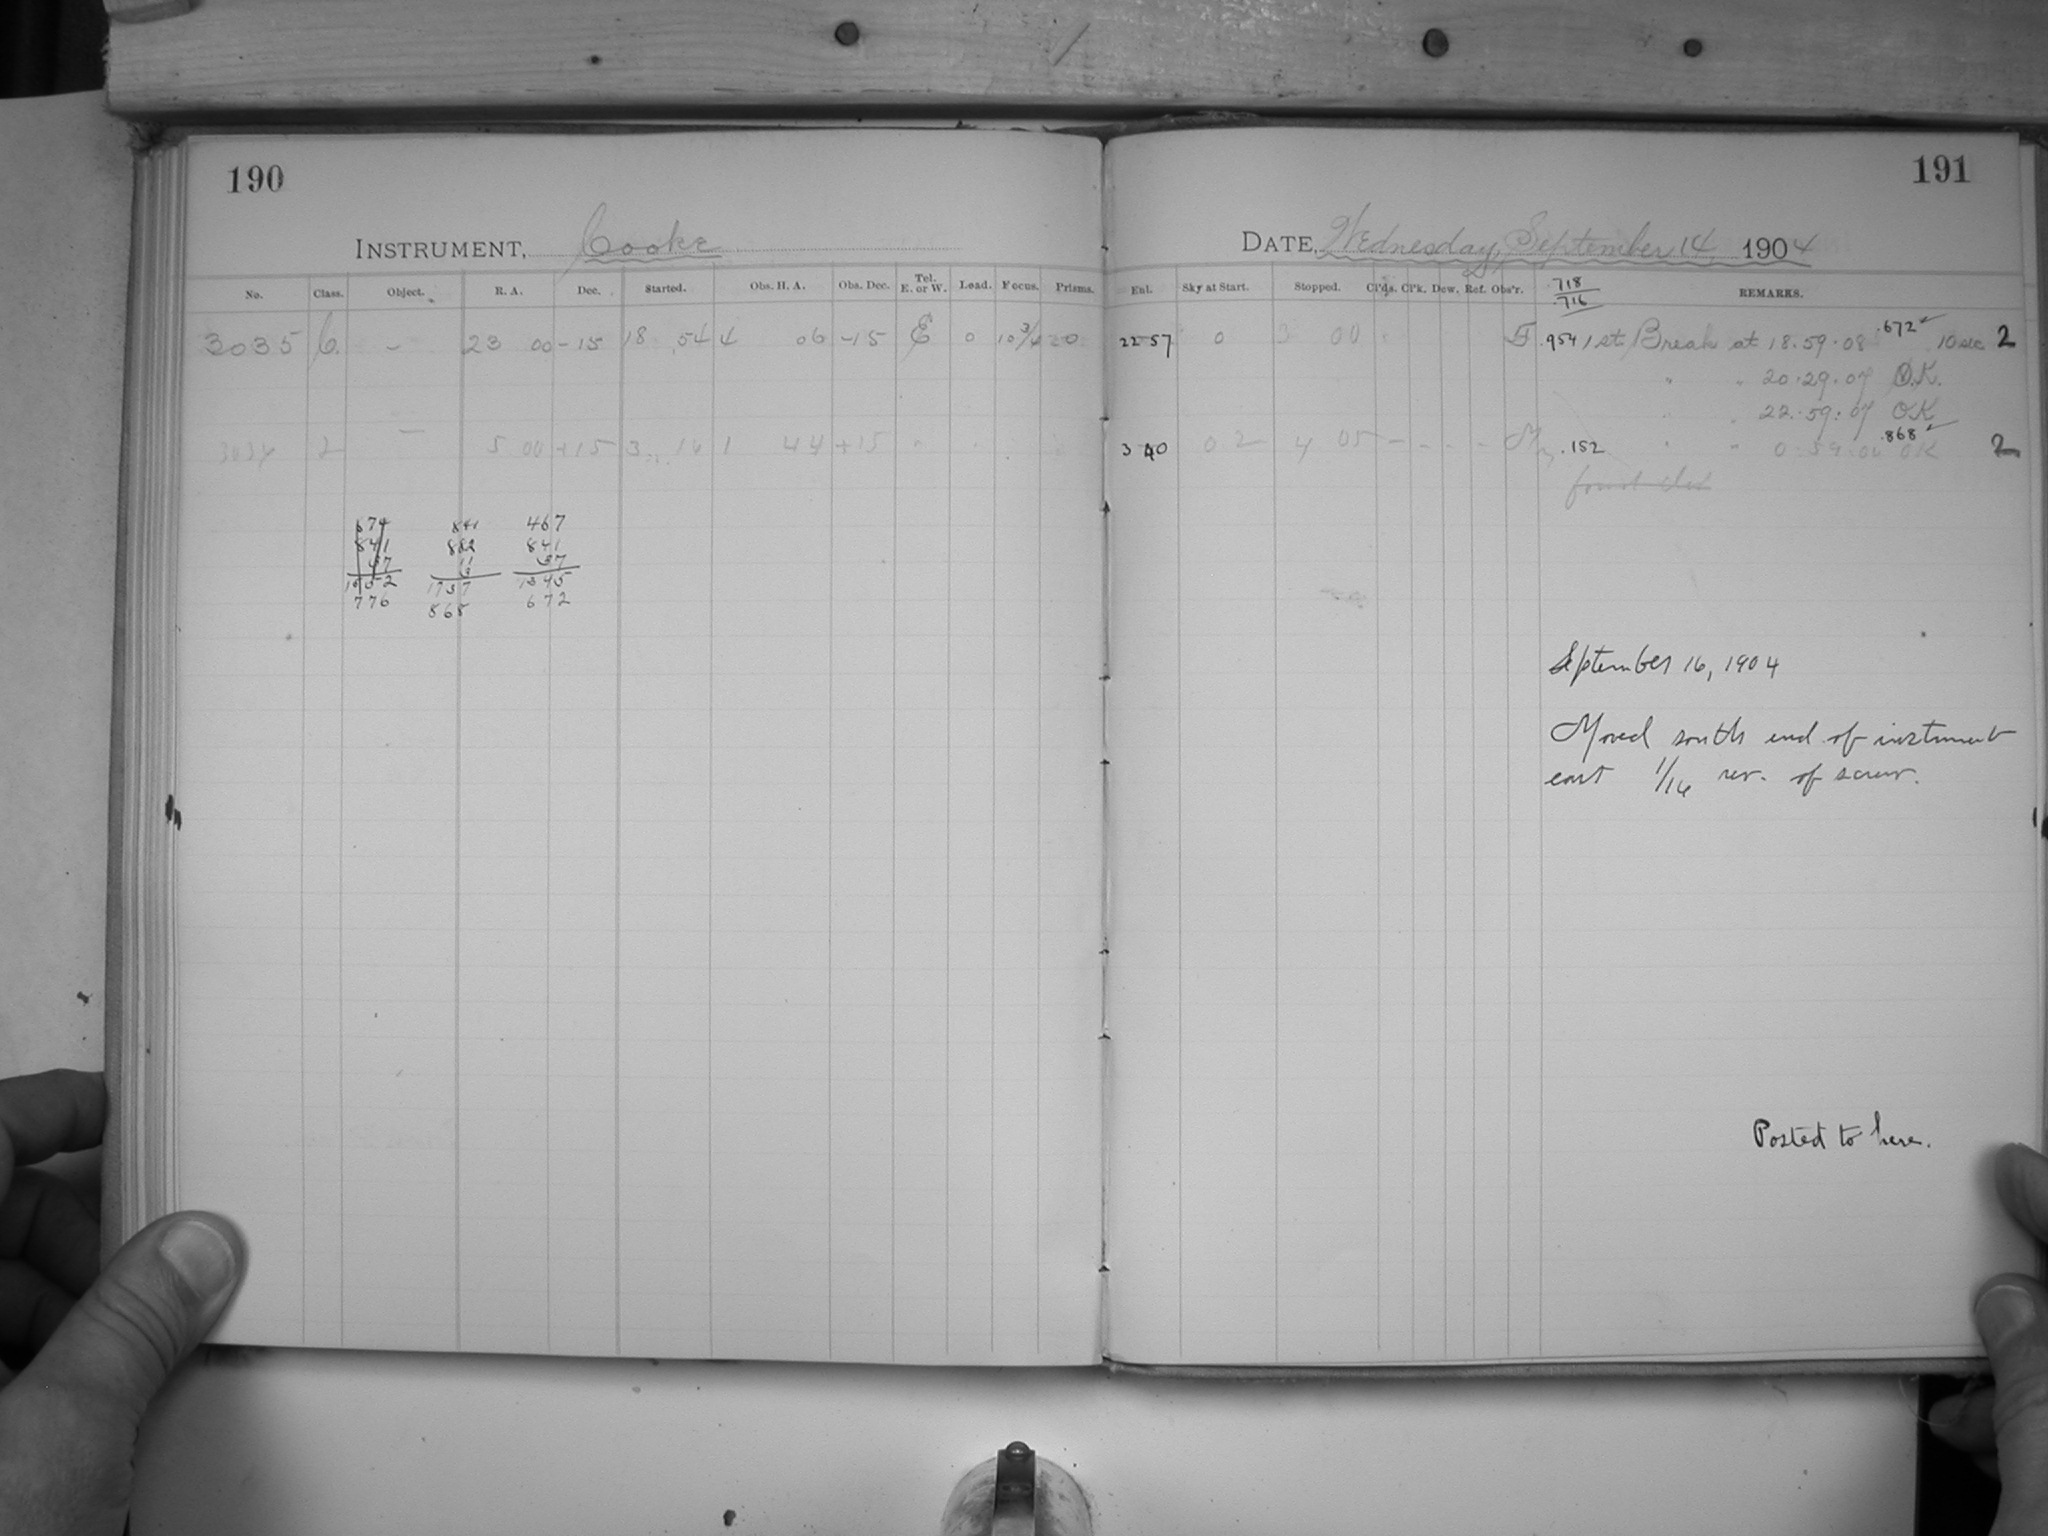 190
INSTRUMENT, Cooke
No. Class. Object. R. A. Dec. Started. Obs. H. A. Obs. Dec. Tel. E. or W. Lead. Focus. Prisms.
3035 C. – 23 00 -15 18 54 4 06 -15 E 0 10 3/4 0
2 — 5 00 +15 3 16 1 44 +15
674 841 467
841 882 841
37 13 37
1552 1737 1345
776 868 672
191
DATE, Wednesday, September 14, 1904
Ent. Sky at Start. Stopped. Cl'ds. Cl'k. Dew. Ref. Obs'r. .718 / .716 REMARKS.
22 57 0 3 00 F .954 1st Break at 18.59.08 .672 ✓ 10 sec 2
" " 20.29.07 O.K.
" 22.59.07 OK
3 40 0 2 4 05 – – – – .152 " " 0.59.06 OK .868 ✓ 2
September 16, 1904
Moved south end of instrument
east 1/16 rev. of screw.
Posted to here.